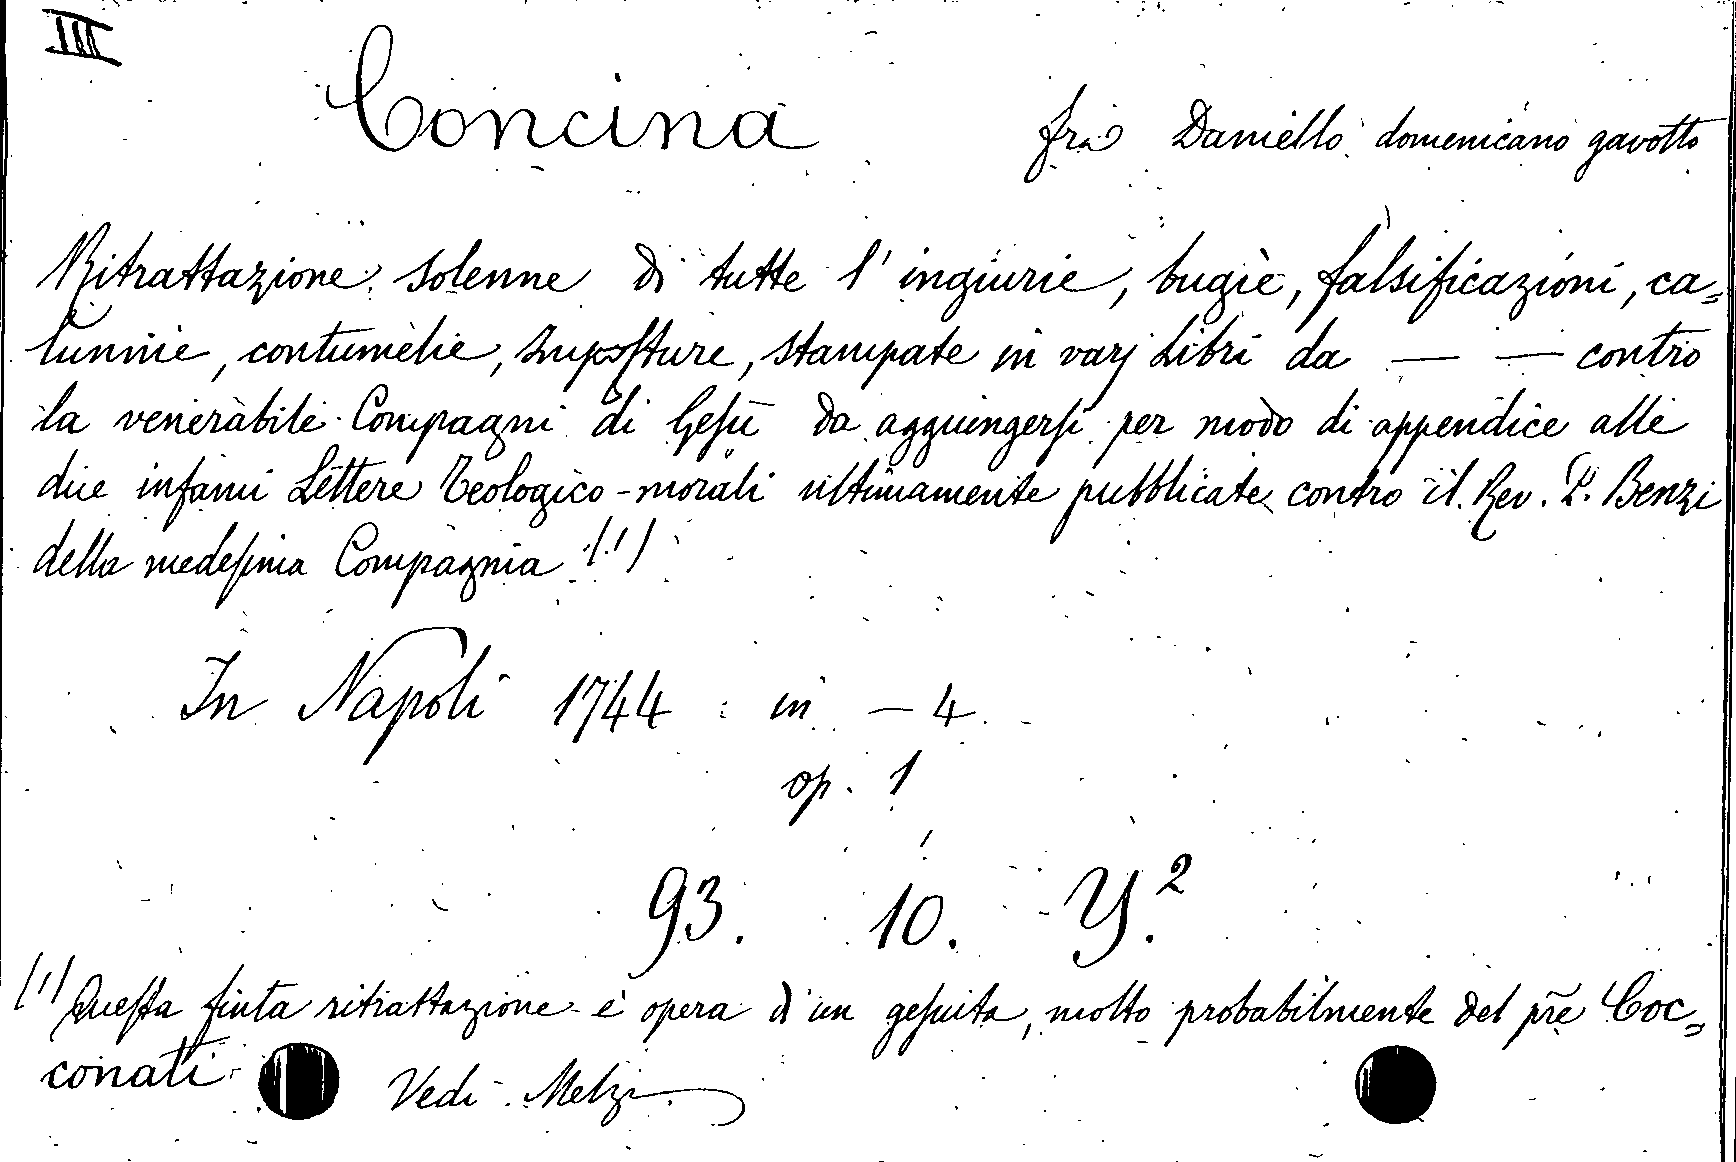 III
Concina fra Daniello domenicano gavotto
Ritrattazione solenne di tutte l'ingiurie, bugie, falsificazioni, ca=
lunnie, contumelie, Imposture, stampate in varj Libri da — — contro
la venerabile Compagni di Gesù da aggiungersi per modo di appendice alle
due infami Lettere Teologico-morali ultimamente pubblicate contro il Rev. P. Benzi
della medesima Compagnia (1)
In Napoli 1744 in - 4
op. 1
93. 10. Y.2
(1) Questa finta ritrattazione è opera d'un gesuita, molto probabilmente del pre Coc=
conati Vedi Melzi